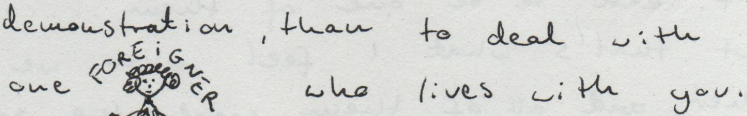 demonstration, than to deal with
one FOREIGNER who lives with you.